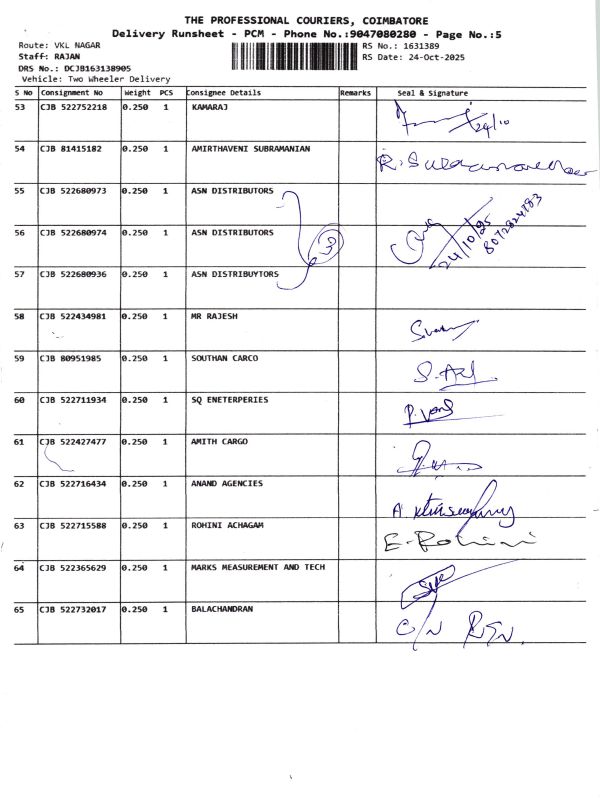 THE PROFESSIONAL COURIERS, COIMBATORE
Delivery Runsheet - PCM - Phone No.:9047080280 - Page No.:5
Route: VKL NAGAR RS No.: 1631389
Staff: RAJAN RS Date: 24-Oct-2025
DRS No.: DCJB163138905
Vehicle: Two Wheeler Delivery
S No Consignment No Weight PCS Consignee Details Remarks Seal & Signature
53 CJB 522752218 0.250 1 KAMARAJ 24/10
54 CJB 81415182 0.250 1 AMIRTHAVENI SUBRAMANIAN
55 CJB 522680973 0.250 1 ASN DISTRIBUTORS
56 CJB 522680974 0.250 1 ASN DISTRIBUTORS 3 24/10/25
57 CJB 522680936 0.250 1 ASN DISTRIBUYTORS
58 CJB 522434981 0.250 1 MR RAJESH
59 CJB 80951985 0.250 1 SOUTHAN CARCO
60 CJB 522711934 0.250 1 SQ ENETERPERIES
61 CJB 522427477 0.250 1 AMITH CARGO
62 CJB 522716434 0.250 1 ANAND AGENCIES
63 CJB 522715588 0.250 1 ROHINI ACHAGAM E-Rohini
64 CJB 522365629 0.250 1 MARKS MEASUREMENT AND TECH
65 CJB 522732017 0.250 1 BALACHANDRAN C/N